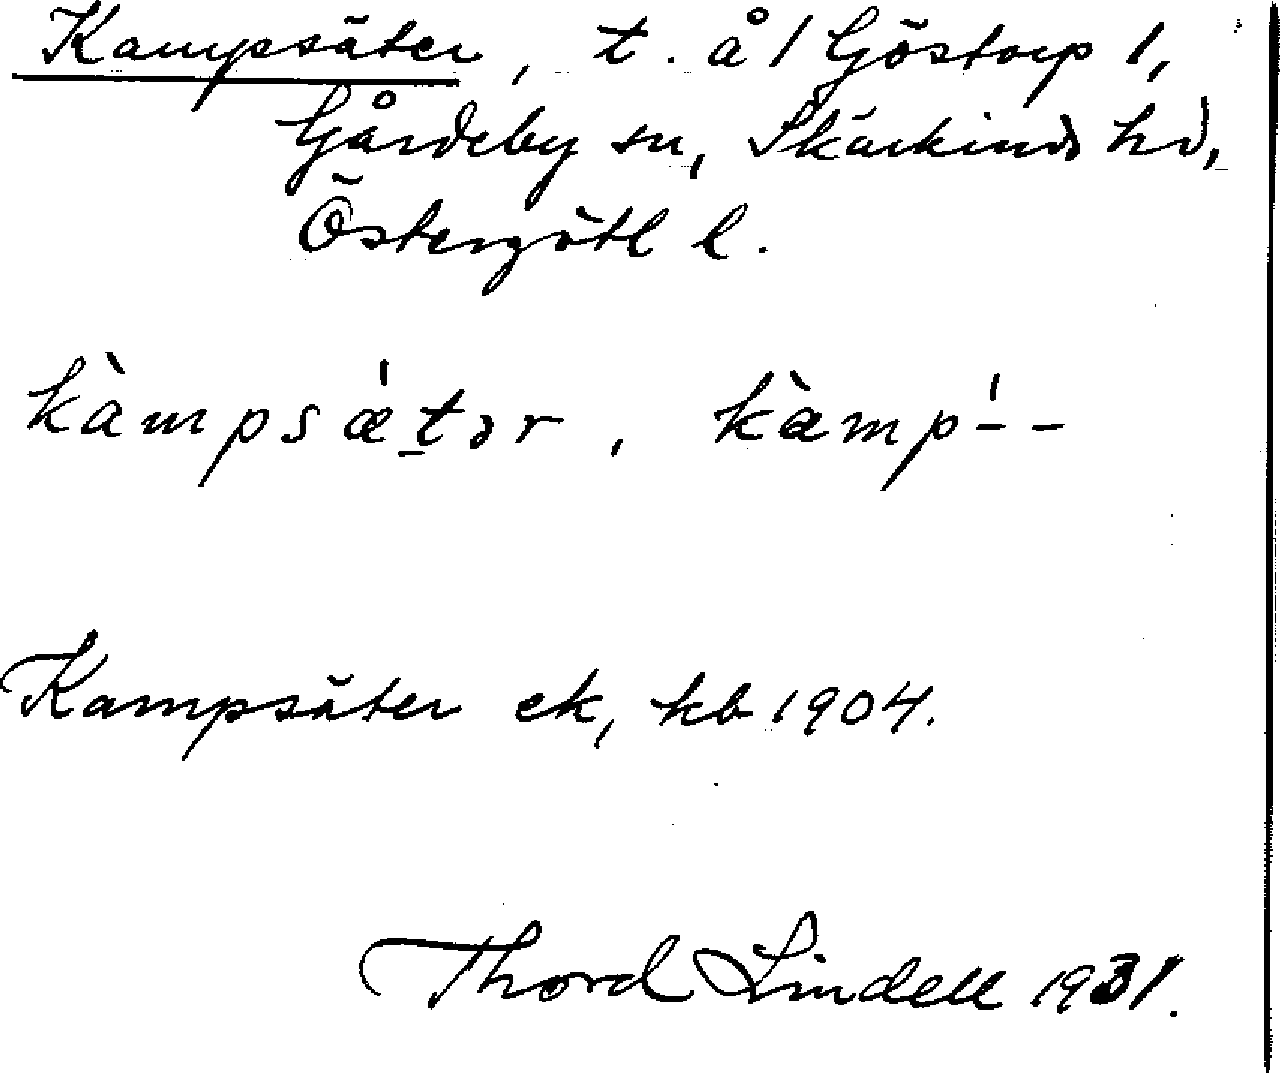 Kampsäter, t. å / Göstorp 1,
Gårdeby sn, Skärkinds hd,
Östergötl l.
kàmpsæ̍tər, kæ̀mp-̍-
Kampsäter ek, kb 1904.
Thord Lindell 1931.